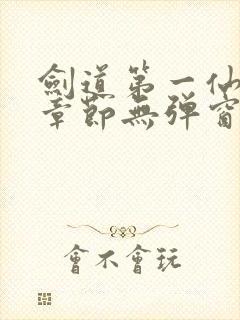 劍道第一仙
章節無彈窗
會不會玩